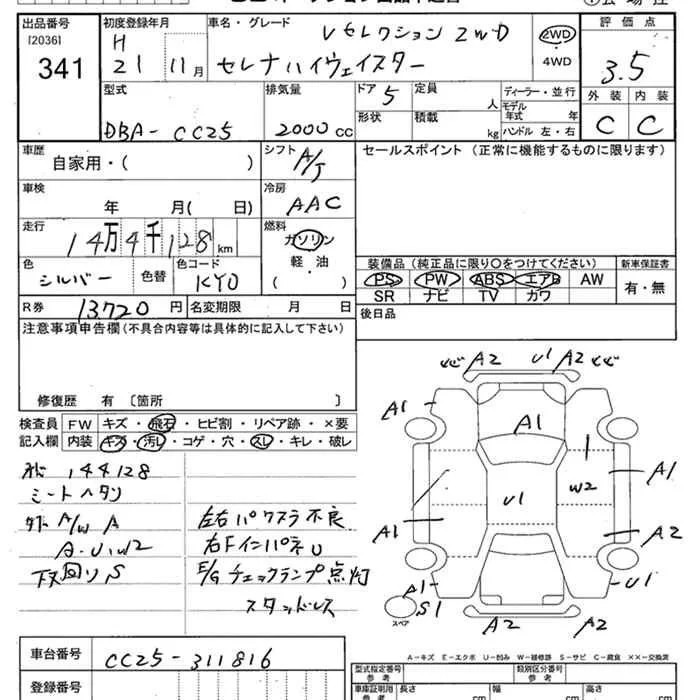 出品番号 初度登録年月 車名・グレード 評価点
[2036] H Vセレクション 2WD 2WD
341 21 11月 セレナハイウェイスター ・ 4WD 3.5
型式 排気量 ドア 5 定員 人 ディーラー・並行 外装 内装
モデル年式 年
DBA-CC25 2000cc 形状 積載 kg ハンドル 左・右 C C
車歴 シフト A/T セールスポイント (正常に機能するものに限ります)
自家用・( )
車検 冷房
年 月( 日) AAC
走行 燃料
14万4千128km ガソリン
軽・油
( )
色 カラーコード 装備品 (純正品に限り〇をつけてください) 新車保証書
シルバー 色替 KY0 PS PW ABS エアB AW 有・無
SR ナビ TV カワ
R券 13720円 名変期限 月 日 後日品
注意事項申告欄(不具合内容等は具体的に記入して下さい)
修復歴 有 〔箇所 〕
検査員 FW キズ・飛石・ヒビ割・リペア跡・×要
記入欄 内装 キズ・汚レ・コゲ・穴・スレ・キレ・破レ
144128
シートヘタリ
外 A/W A 左右パワスラ不良
A・U・W2 右FインパネU
下回リS E/gチェックランプ点灯
スタッドレス
A2 U1 A2
A1 A1
U1 W2 A1
A1 A2
A1 U1
スペア S1 A2 A2
A-キズ E-エクボ U-凹み W-補修跡 S-サビ C-腐食 ××-交換済
車台番号 CC25-311816
登録番号
型式指定番号 参考 類別区分番号 参考
車庫証明用 参考 長さ cm 幅 cm 高さ cm